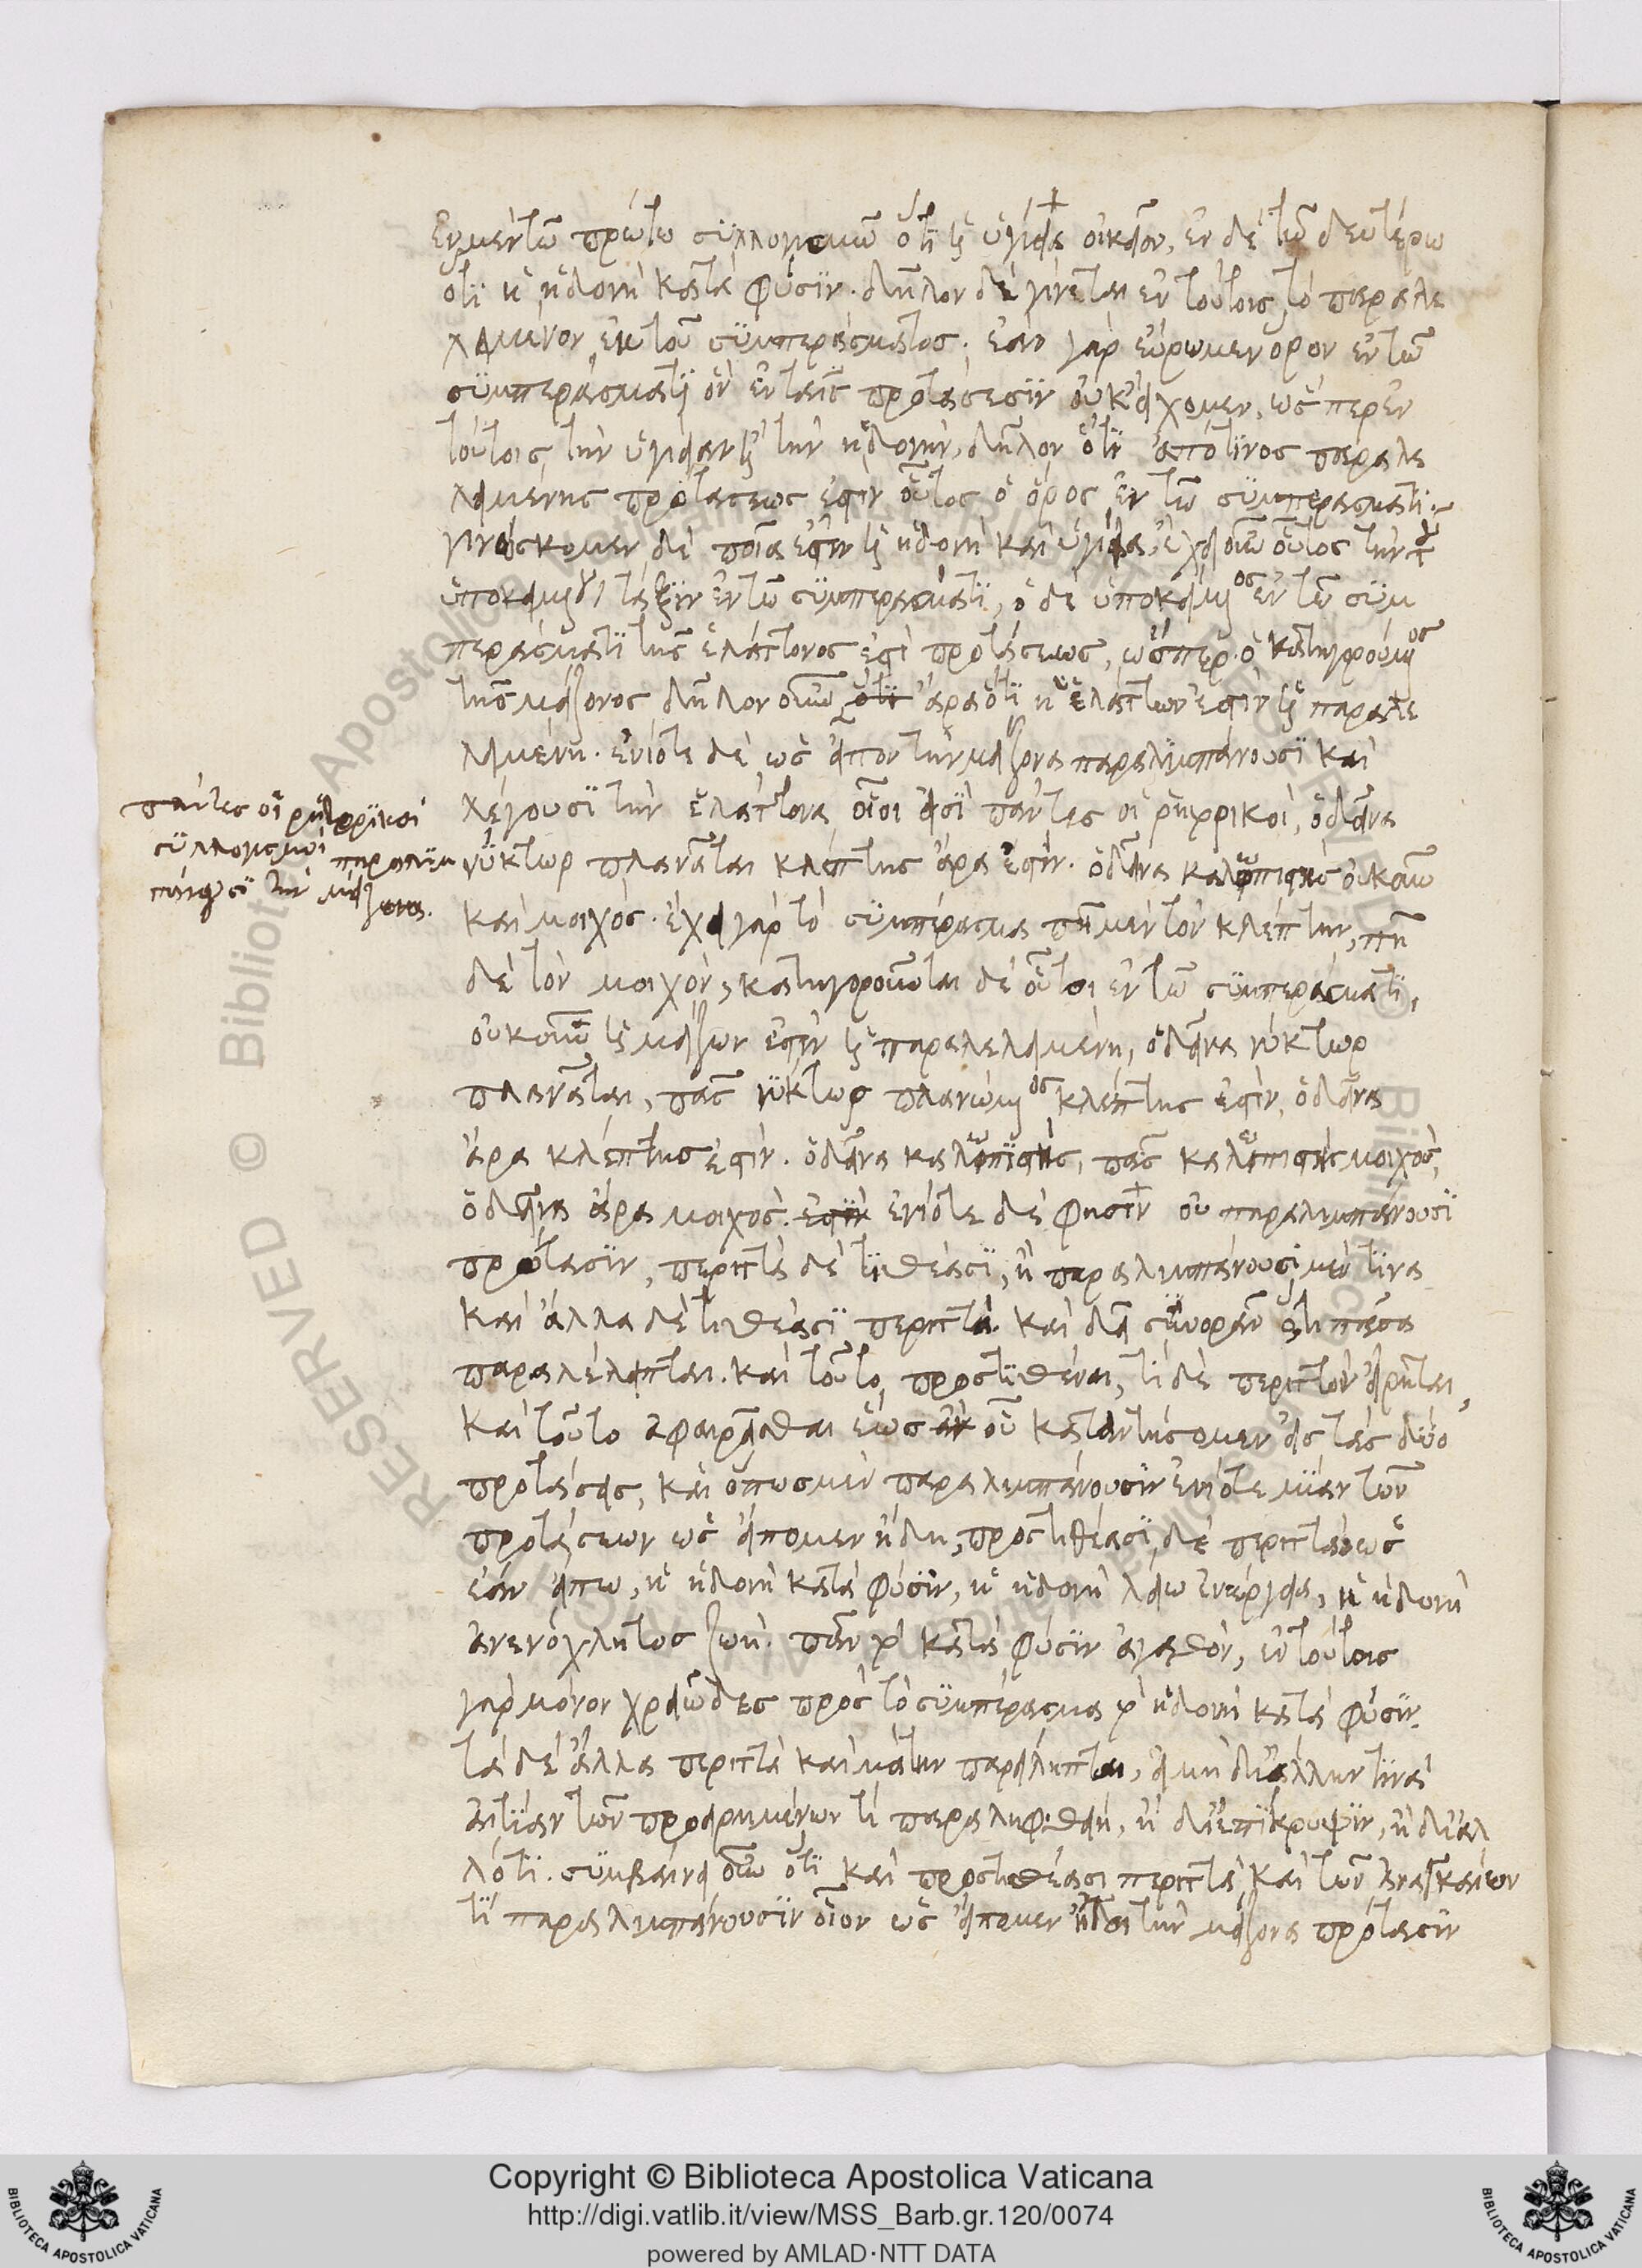 ἐν μὲν τῶ πρώτω συλλογισμῶ ὅτι ἡ ὑγίεια οἰκεῖον, ἐν δὲ τῶ δευτέρω
ὅτι ἡ ἡδονὴ κατὰ φύσιν. δῆλον δὲ γίνεται ἐν τούτοις τὸ παραλε
λειμένον ἐκ τοῦ συμπεράσματος. ἐὰν γὰρ εὕρωμεν ὅρον ἐν τῶ
συμπεράσματι ὃν ἐν ταῖς προτάσεσιν οὐκ εἴχομεν, ὥσπερ ἐν
τούτοις τὴν ὑγίειαν ἢ τὴν ἡδονήν, δῆλον ὅτι ἀπό τινος παραλε
λειμένης προτάσεως ἐστὶν οὗτος ὁ ὅρος ἐν τῶ συμπεράσματι.
γινώσκομεν δὲ ποία ἐστὶν ἡ ἡδονὴ καὶ ὑγίεια, ἔχει οὖν οὗτος τὴν τοῦ
ὑποκειμένου τάξιν ἐν τῶ συμπεράσματι, ὁ δὲ ὑποκείμενος ἐν τῶ συμ
περάσματι τῆς ἐλάττονος ἐστὶ προτάσεως, ὥσπερ ὁ κατηγορούμενος
τῆς μείζονος δῆλον οὖν ὅτι ἄρα ὅτι ἡ ἐλάττων ἐστὶν ἡ παραλε
λειμένη. ἐνίοτε δὲ ὡς εἶπον τὴν μείζονα παραλιμπάνουσι καὶ
λέγουσι τὴν ἐλάττονα, οἷοι εἰσὶ πάντες οἱ ῥητορικοί, ὁ δεῖνα
νύκτωρ πλανᾶται κλέπτης ἄρα ἐστίν. ὁ δεῖνα καλλωπιστὴς οὐκοῦν
καὶ μοιχός. ἔχει γὰρ τὸ συμπέρασμα πῆ μὲν τὸν κλέπτην, πῆ
δὲ τὸν μοιχόν, κατηγοροῦνται δὲ οὗτοι ἐν τῶ συμπεράσματι,
οὐκοῦν ἡ μείζων ἐστὶν ἡ παραλελειμένη, ὁ δεῖνα νύκτωρ
πλανᾶται, πᾶς νύκτωρ πλανώμενος κλέπτης ἐστίν, ὁ δεῖνα
ἄρα κλέπτης ἐστίν. ὁ δεῖνα καλλωπιστὴς, πᾶς καλλωπιστὴς μοιχός,
ὁ δεῖνα ἄρα μοιχός. ἐστὶν ἐνίοτε δὲ φησὶν οὐ παραλιμπάνουσι
πρότασιν, περιττὰ δὲ τιθέασι, ἢ παραλιμπάνουσι μὲν τινα
καὶ ἄλλα δὲ τιθέασι περιττά. καὶ δεῖ συνορᾶν ὅτι πᾶσα
παραλέλειπται. καὶ τοῦτο προστιθέναι, τί δὲ περιττὸν εἴρηται,
καὶ τοῦτο ἀφαιρεῖσθαι ἕως ἂν οὗ καταντήσομεν εἰς τὰς δύο
προτάσεις, καὶ ὅπως μὲν παραλιμπάνουσιν ἐνίοτε μίαν τῶν
προτάσεων ὡς εἴπομεν ἤδη, προστιθέασι δὲ περιττὰ, ὡς
ἐὰν εἴπω, ἡ ἡδονὴ κατὰ φύσιν, ἡ ἡδονὴ λείω ἐνέργεια, ἡ ἡδονὴ
ἀνενόχλητος ζωή. πᾶν τὸ κατὰ φύσιν ἀγαθόν, ἐν τούτοις
γὰρ μόνον χρειῶδες πρὸς τὸ συμπέρασμα τὸ ἡδονὴ κατὰ φύσιν.
τὰ δὲ ἄλλα περιττὰ καὶ μάτην παρείληπται, εἰ μὴ δι' ἄλλην τινὰ
αἰτίαν τῶν προειρημένων τί παραληφθείη, ἢ δι' ἐπίκρυψιν, ἢ δι' ἄλ
λό τι. συμβαίνει οὖν ὅτι καὶ προστιθέασι περιττὰ καὶ τῶν ἀναγκαίων
τί παραλιμπάνουσιν οἷον ὡς εἴπομεν ἤτοι τὴν μείζονα πρότασιν
πάντες οἱ ῥητορικοὶ
συλλογισμοὶ παραλιμ
πάνουσι τὴν μείζονα.
Copyright © Biblioteca Apostolica Vaticana
http://digi.vatlib.it/view/MSS_Barb.gr.120/0074
powered by AMLAD·NTT DATA